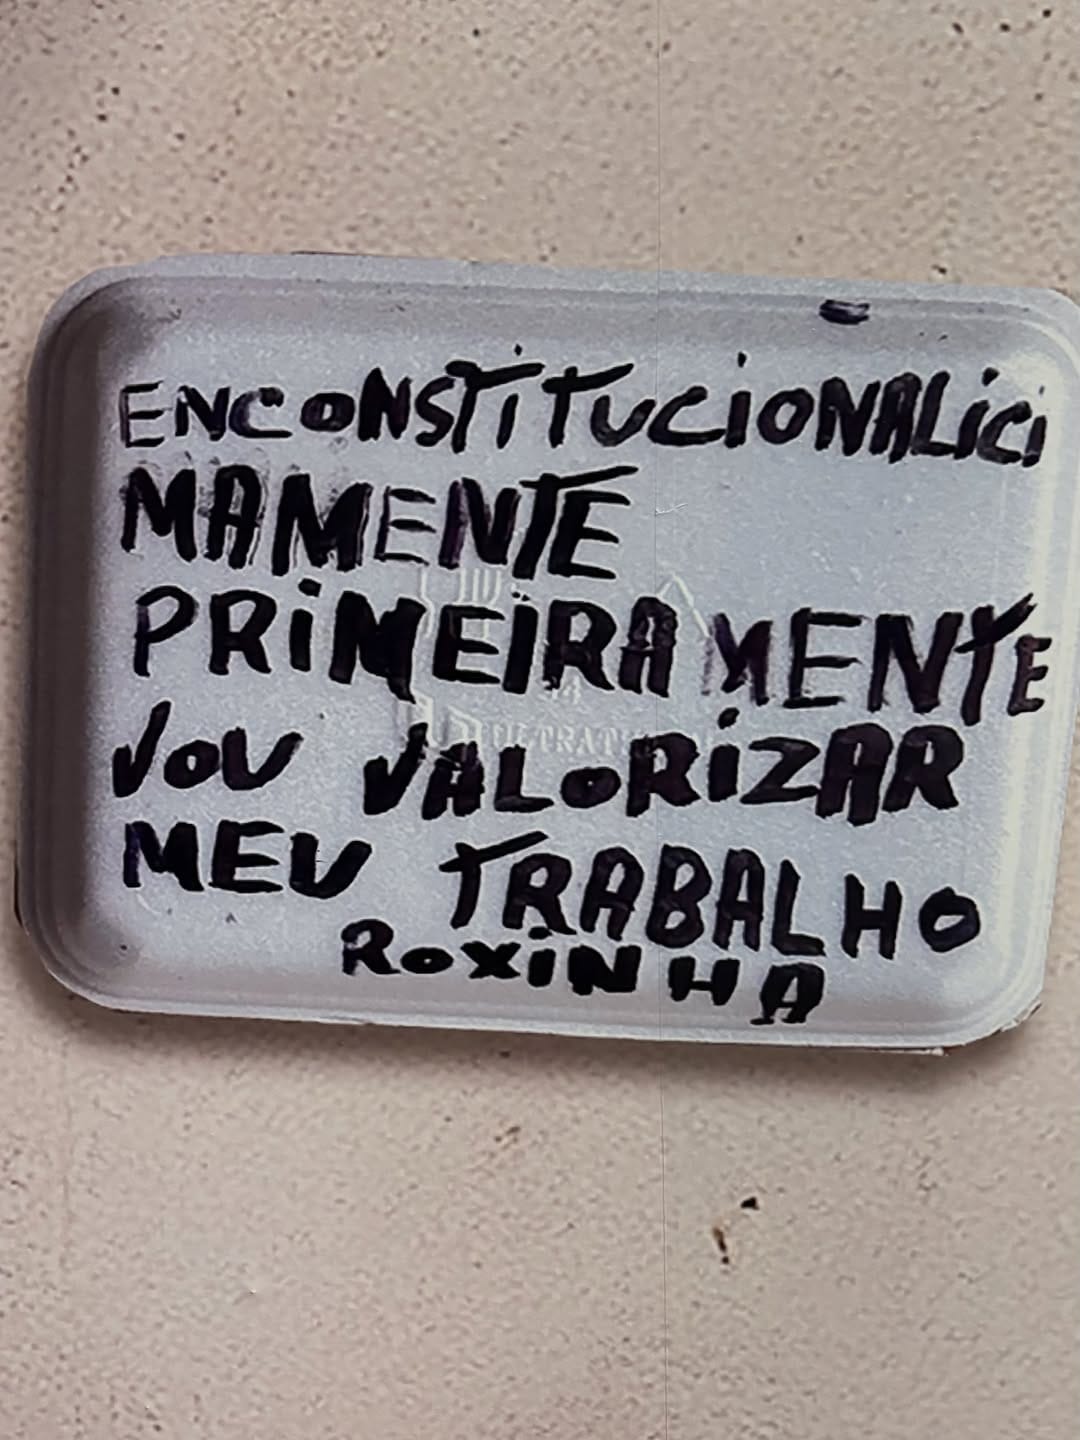 ENCONSTiTUCiONALiCi
MAMENTE
PRiMEiRAMENTE
VOU VALORiZAR
MEU TRABALHO
ROXiNHA